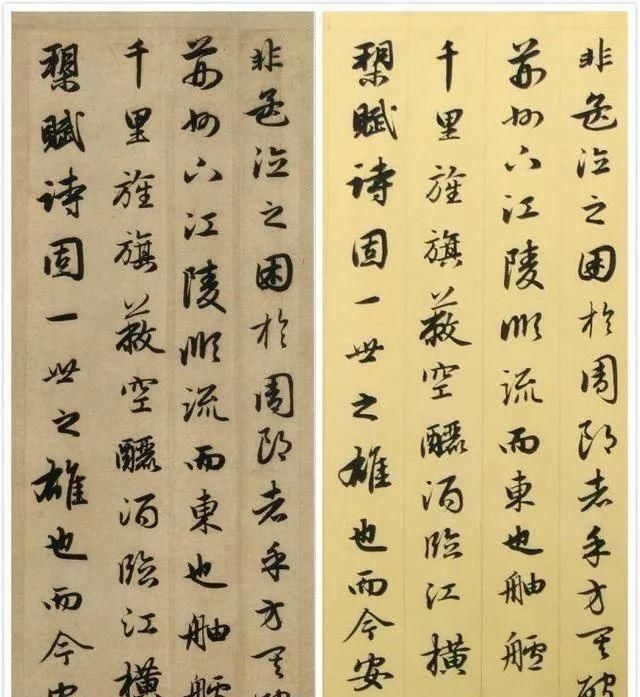 非孟德之困於周郎者乎方其破
荊州下江陵順流而東也舳艫
千里旌旗蔽空釃酒臨江橫
槊賦詩固一世之雄也而今安
非孟德之困於周郎者乎方其破
荊州下江陵順流而東也舳艫
千里旌旗蔽空釃酒臨江橫
槊賦詩固一世之雄也而今安